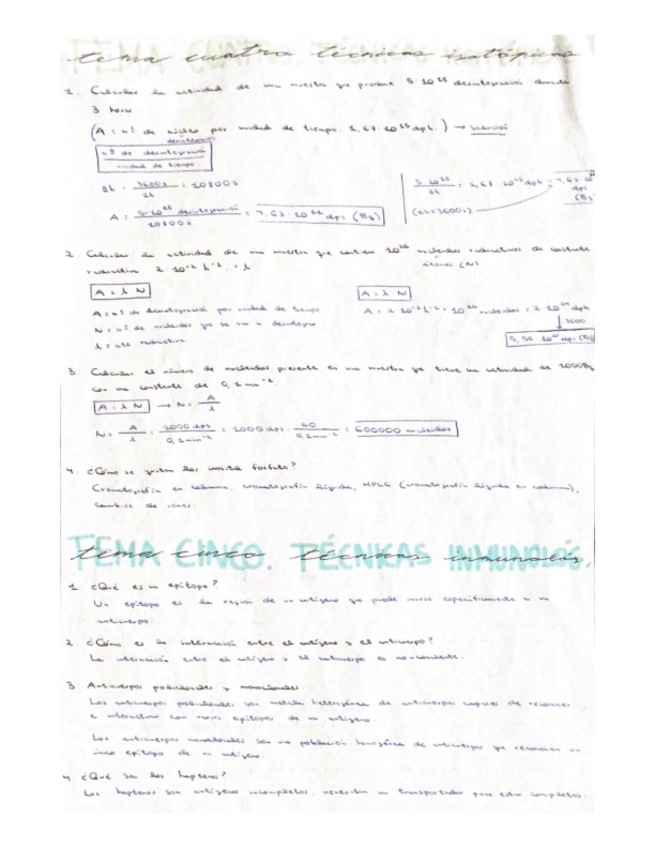 tema cuatro. técnicas isotópicas
1. Calcular la actividad de una muestra que produce 5·10²⁵ desintegraciones durante
3 horas
(A = nº de núcleos por unidad de tiempo. 1,67·10²⁵ dph.) → solución
desintegració
nº de desintegració
unidad de tiempo
3h · 3600s / 1h = 10800s
A = 5·10²⁵ desintegració / 10800s
dps (Bq)
(1h=3600s)
2. Calcular la actividad de una muestra que contiene 10²⁶ nucleidos radiactivos de constante
radiactiva 2·10⁻² h⁻¹ = λ
átomos (N)
A = λ N
A = λ N
A = nº de desintegració por unidad de tiempo
N = nº de nucleidos que se van a desintegrar
λ = cte radiactiva
A = 2·10⁻² h⁻¹ · 10²⁶ nucleidos = 2·10²⁴ dph
3600
dps (Bq)
3. Calcular el número de nucleidos presente en una muestra que tiene una actividad de 1000Bq
con una constante de 0,1 min⁻¹.
A = λ N → N = A / λ
N = A / λ = 1000 dps / 0,1 min⁻¹ = 1000 dps · 60 / 0,1 min⁻¹ = 600000 nucleidos
4. ¿Cómo se
fosfato?
Cromatografía en columna, cromatografía líquida, HPLC (cromatografía líquida en columna),
cambios de iones.
tema cinco. técnicas inmunológ.
1 ¿Qué es un epítopo?
Un epítopo es la región de un antígeno que puede unirse específicamente a un
anticuerpo.
2 ¿Cómo es la interacción entre el antígeno y el anticuerpo?
La interacción entre el antígeno y el anticuerpo es no-covalente.
3 Anticuerpos policlonales y monoclonales.
Los anticuerpos policlonales son mezcla heterogénea de anticuerpos capaces de reconocer
e interactuar con varios epítopos de un antígeno.
Los anticuerpos monoclonales son una población homogénea de anticuerpos que reconocen un
único epítopo de un antígeno.
4 ¿Qué son los haptenos?
Los haptenos son antígenos incompletos, necesitan un transportador para estar completos.